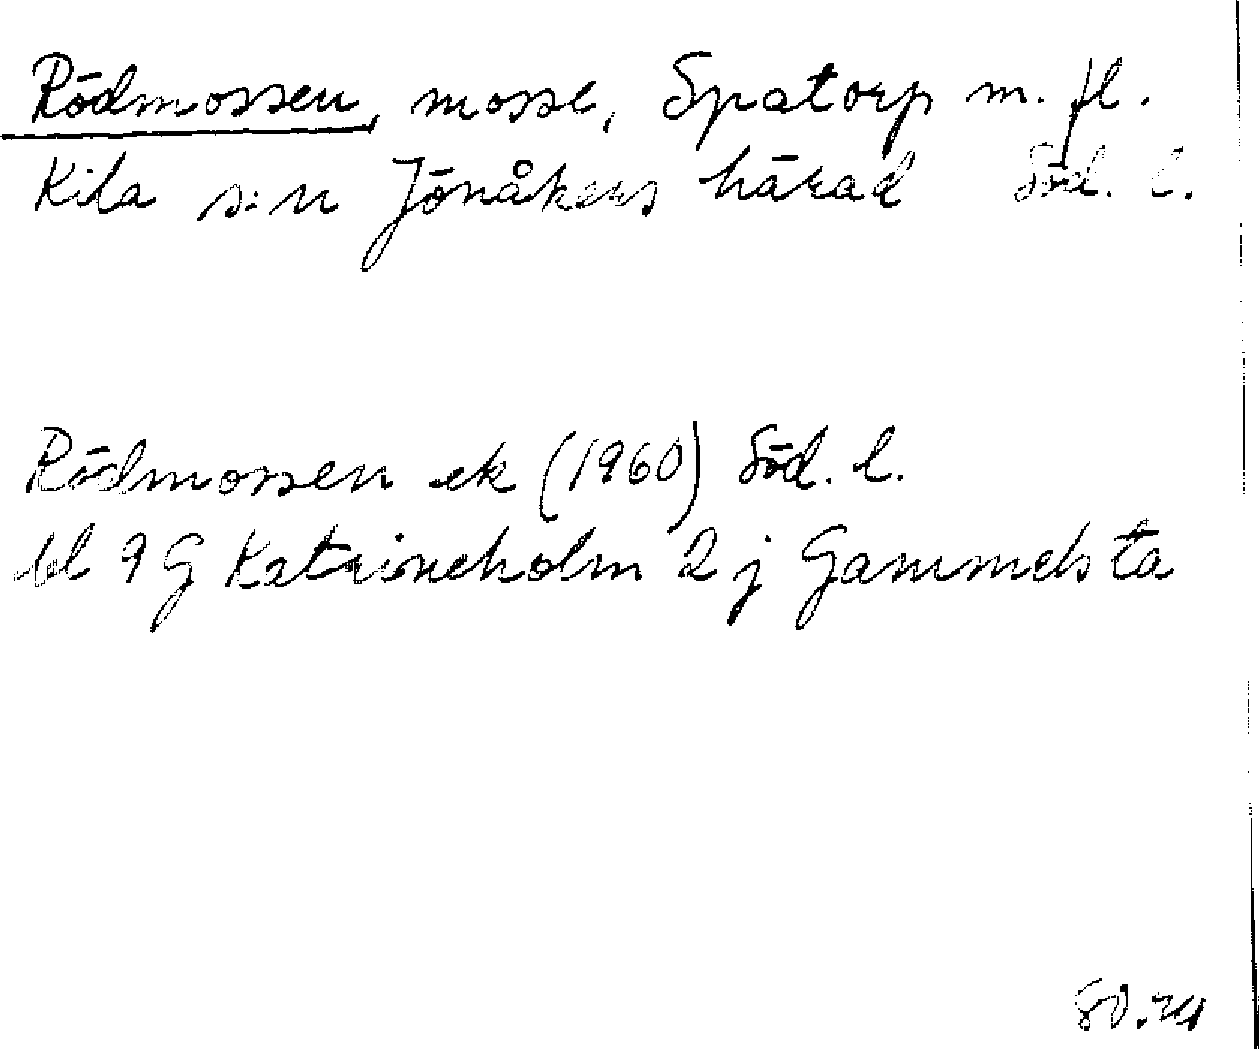 Rödmossen, mosse, Spatorp m. fl.
Kila s:n Jönåkers härad Söd. l.
Rödmossen ek (1960) Söd. l.
bl 9 G Katrineholm 2 j Gammelsta